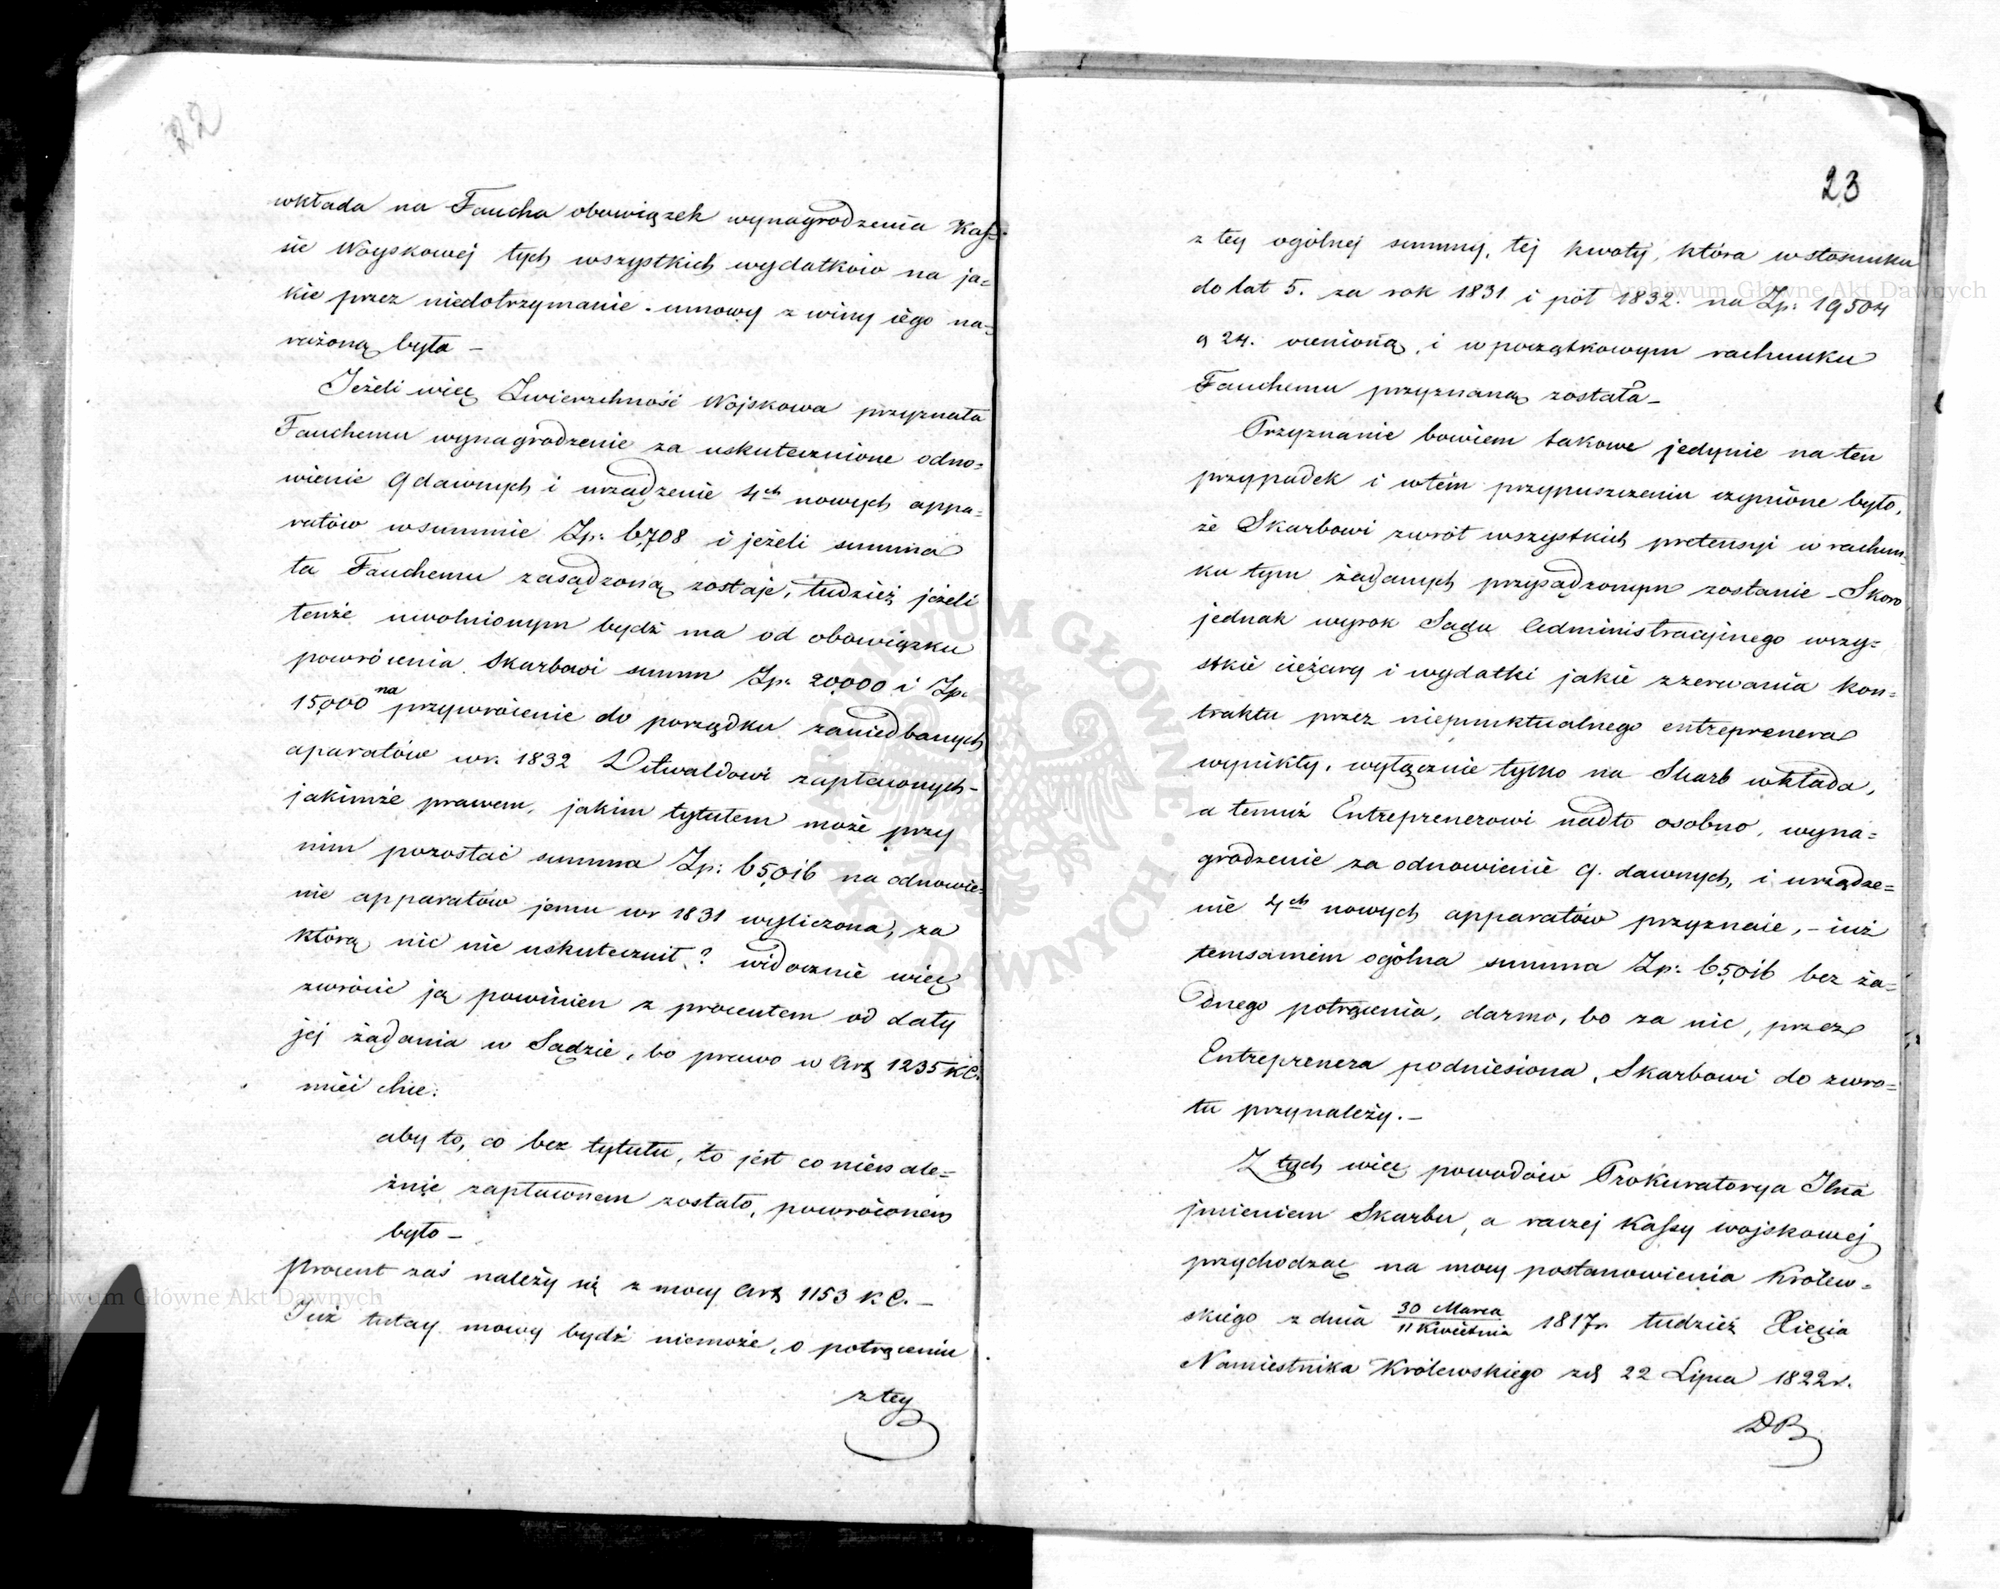 22
wkłada na Faucha obowiązek wynagrodzenia Kas=
sie Woyskowéj tych wszystkich wydatków na ja=
kie przez niedotrzymanie umowy z winy iego na=
rażoną była –
Jeżeli więc Zwierzchność Wojskowa przyznała
Fauchemu wynagrodzenie za uskutecznione odno=
wienie 9 dawnych i urządzenie 4ch nowych appa=
ratów w summie Zp: 6,708 i jeżeli summa
ta Fauchemu zasądzoną zostaje, tudzież jeżeli
tenże uwolnionym bydź ma od obowiązku
powrócenia Skarbowi summ Zp: 20,000 i Zp.
15,000 na przywrócenie do porządku zaniedbanych
aparatów w r. 1832 Ditwaldowi zapłaconych –
jakimże prawem, jakim tytułem może przy
nim pozostać summa Zp: 65,016 na odnowie=
nie apparatów jemu w r 1831 wyliczona, za
którą nic nie uskutecznił? widocznie więc
zwrócić ją powinien z procentem od daty
jéj żądania w Sądzie, bo prawo w Art 1235 KC.
mieć chce:
aby to, co bez tytułu, to jest co nienale=
żnie zapłaconem zostało, powróconem
było –
procent zaś należy się z mocy Art 1153 KC. –
Już tutay mowy bydź niemoże, o potrąceniu
z tey
23
z tey ogólnej summy, téj kwoty, która w stosunku
do lat 5. za rok 1831 i pół 1832. na Zp: 19504
g 24. ocenioną, i w początkowym rachunku
Fauchemu przyznaną została –
Przyznanie bowiem takowe jedynie na ten
przypadek i w tém przypuszczeniu czynione było,
że Skarbowi zwrót wszystkich pretensyi w rachun=
ku tym żądanych przysądzonym zostanie – Skoro
jednak wyrok Sądu Administracyinego wszy=
stkie ciężary i wydatki jakie z zerwania kon=
traktu przez niepunktualnego entreprenera
wynikły, wyłącznie tylko na Skarb wkłada,
a temuż Entreprenerowi nadto osobno, wyna=
grodzenie za odnowienie 9. dawnych, i urządze=
nie 4ch nowych apparatów przyznaie, – iuż
temsamém ogólna summa Zp: 65,016 bez ża=
dnego potrącenia, darmo, bo za nic, przez
Entreprenera podniesiona, Skarbowi do zwro=
tu przynależy. –
Z tych więc powodów Prokuratorya Jlna
jmieniem Skarbu, a raczej Kassy wojskowéj
przychodząc na mocy postanowienia Królew=
skiégo z dnia 30 Marca / 11 Kwietnia 1817 r. tudzież Xięcia
Namiestnika Królewskiego z d 22 Lipca 1822 r.
Archiwum Główne Akt Dawnych
Archiwum Główne Akt Dawnych
ARCHIWUM GŁÓWNE AKT DAWNYCH